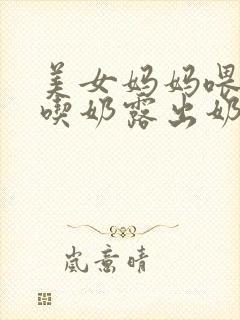 美女妈妈喂
喫奶露出奶
岚意晴